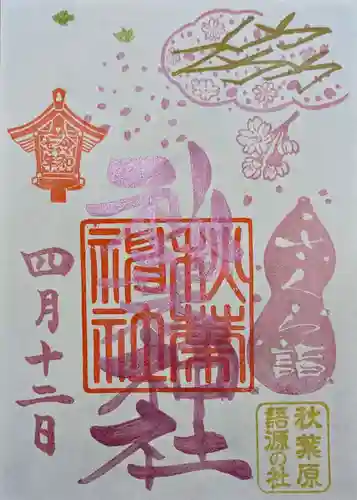 さくら詣
秋葉神社
秋葉神社
四月十二日
秋葉原
語源の社